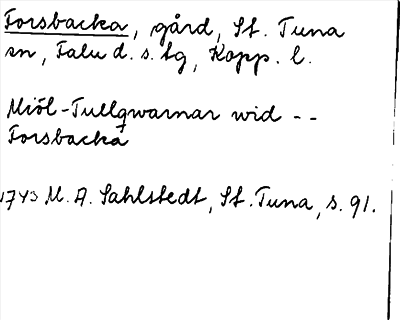 Forsbacka, gård, St. Tuna
sn, Falu d. s. tg, Kopp. l.
Miöl-Tullqwarnar wid - -
Forsbacka
1743 M. A. Sahlstedt, St. Tuna, s. 91.